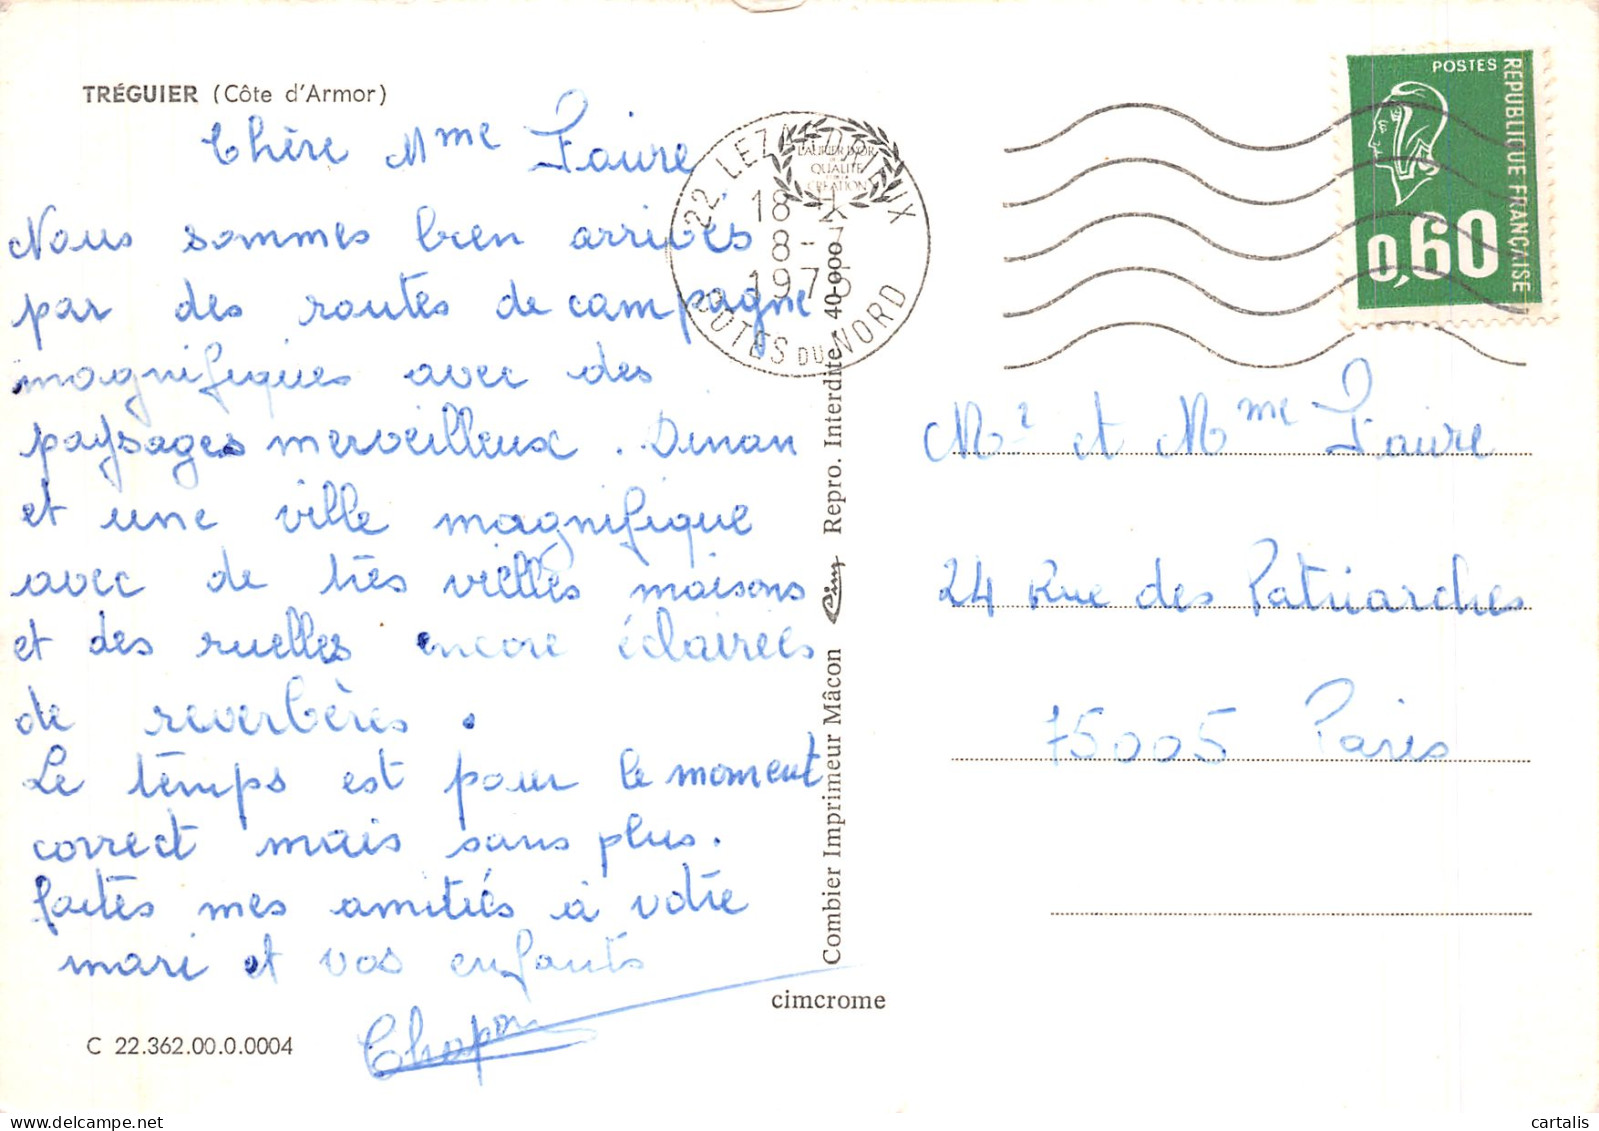 TRÉGUIER (Côte d'Armor)
Chère Mme Faure
Nous sommes bien arrivés
par des routes de campagne
magnifiques avec des
paysages merveilleux. Dinan
et une ville magnifique
avec de très vielles maisons
et des ruelles encore éclairées
de reverbères.
Le temps est pour le moment
correct mais sans plus.
faites mes amitiés à votre
mari et vos enfants
C 22.362.00.0.0004
cimcrome
Combier Imprimeur Mâcon Cim Repro. Interdite - 40-000
LAURIER D'OR
DE LA
QUALITÉ
CRÉATION
22 LEZARDRIEUX
18 H
8 - 7
COTES DU NORD
POSTES
RÉPUBLIQUE FRANÇAISE
0,60
Mr et Mme Faure
24 Rue des Patriarches
75005 Paris
cartalis